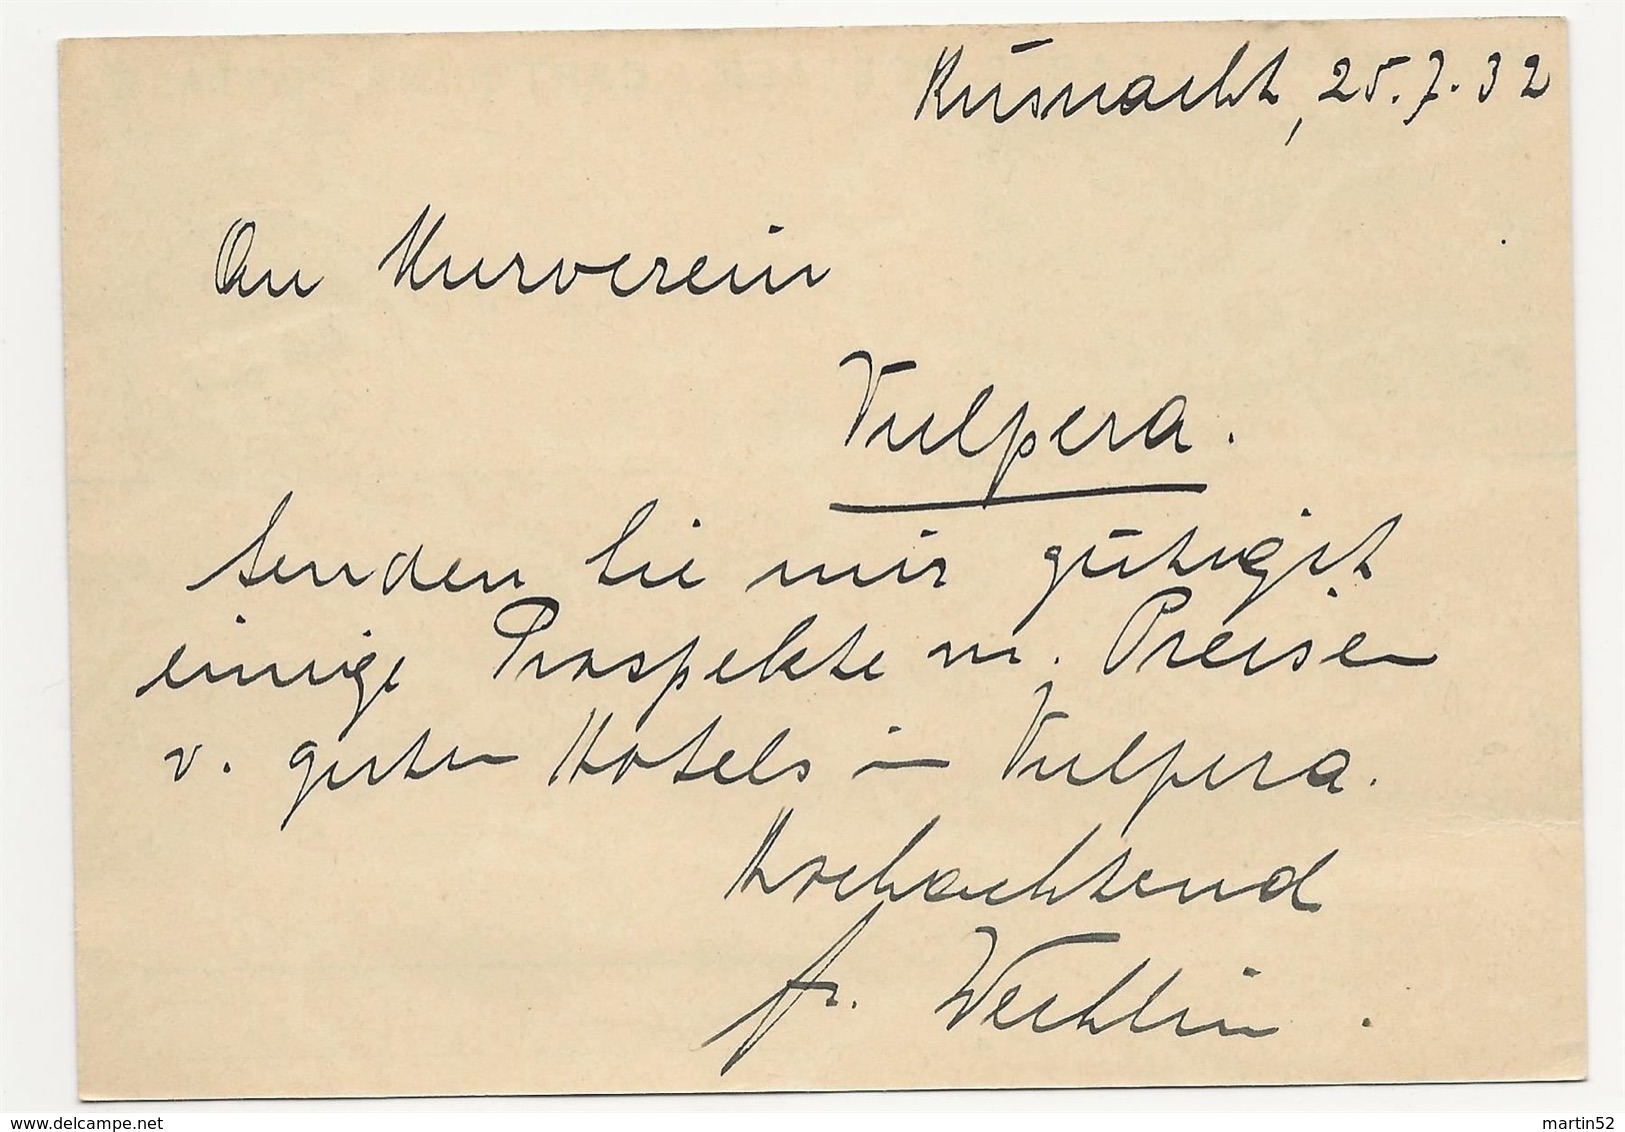 Küsnacht, 25.7.32
An Kurverein
Vulpera.
Senden Sie mir gütigst
einige Prospekte m. Preisen
v. guten Hotels in Vulpera.
Hochachtend
Fr. Wechlin.
delcampe.net
martin52